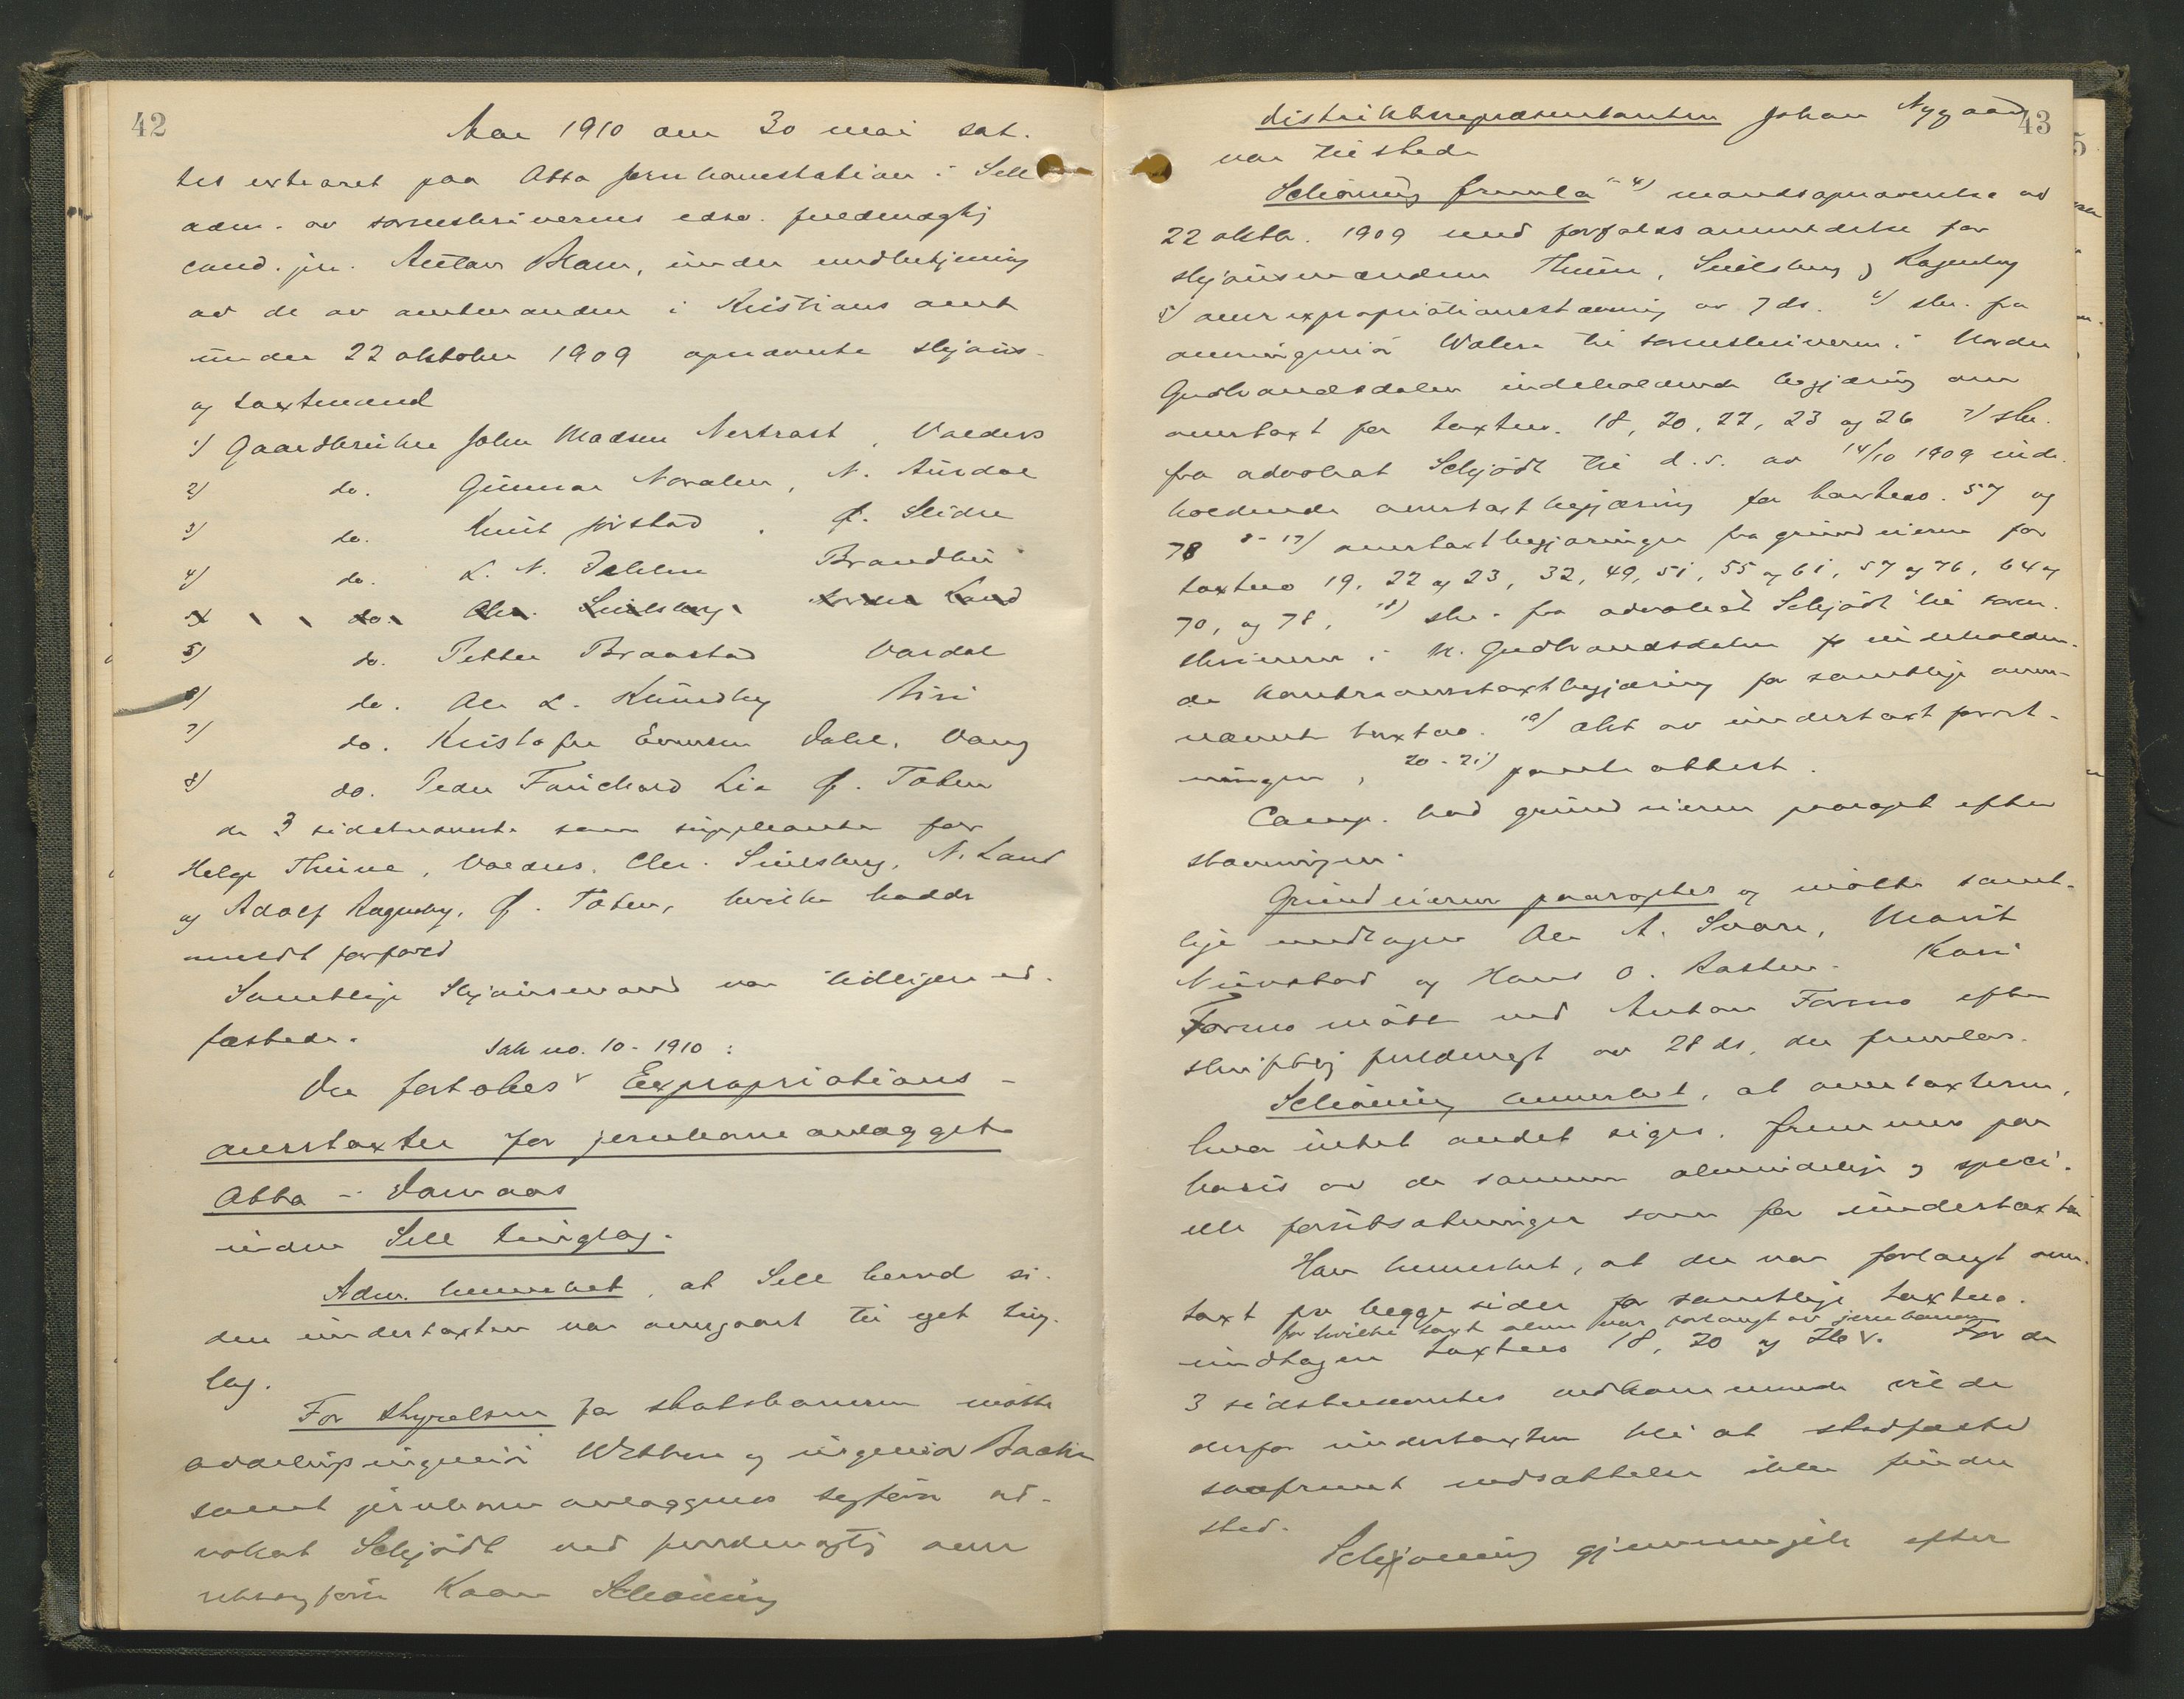 42
Aar 1910 den 30 mai sat-
tes extraret paa Otta jernbanestation i Sell
adm. av sorenskriverens edsv. fuldmægtig
cand. jur. Anton Blam, under medbetjening
av de av amtmanden i Kristians amt
under 22 oktober 1909 opnævnte skjøns-
og taxtmænd
1) Gaardbruker John Madsen Nertrast, Valders
2) do. Gunnar Noralm, N. Aurdal
3) do. Knut Jørstad, Ø. Slidre
4) do. L. N. Brandbu
do. Chr. Smilsberg, Nordre Land
5) do. Petter Braastad Vardal
6) do. Ole L. Kundby Biri
7) do. Kristofer Evensen Dahl, Vang
8) do. Peder Fauchald Lie Ø. Toten
de 3 sidstnævnte som suppleanter for
Helge Thune, Valders, Chr. Smilsberg, N. Land
og Adolf Ragnsby, Ø. Toten, hvilke hadde
meldt forfald
Samtlige skjønsmænd var tidligere ed-
fæstede.
Sak no. 10 - 1910:
Der foretokes Expropriations-
overtaxter for jernbaneanlægget
Otta - Domaas
inden Sell tinglag.
Adm. bemerket, at Sell herred si-
den undertaxten var overgaat til eget ting-
lag.
For styrelsen for statsbanerne møtte
avdelingsingeniør og ingeniør Bache
samt jernbaneanlæggenes sagfører ad-
vokat Schjødt ved fuldmægtig over-
retssagfører Kaare Schøning
43
Distriktsrepræsentanten Johan Nygaard
var tilstede
Schøning fremla 4) mandsopnævnelse av
22 oktbr. 1909 med forfaldsanmeldelse for
skjønsmændene Thune, Smilsberg og Ragnsby
5) overexpropriationsstævning av 7 ds. 6) skr. fra
overingeniør Wolen til sorenskriveren i Nordre
Gudbrandsdalen indeholdende begjæring om
overtaxt for taxtno. 18, 20, 22, 23 og 26 7) skr.
fra advokat Schjødt til d.s. av 14/10 1909 inde-
holdende overtaxtbegjæring for taxtno. 57 og
78 8-17) overtaxtbegjæringer fra grundeierne for
taxtno 19, 22 og 23, 32, 49, 51, 55 og 61, 57 og 76, 64 og
70, og 78, 18) skr. fra advokat Schjødt til soren-
skriveren i N. Gudbrandsdalen indeholden-
de kontraovertaxtbegjæring for samtlige oven-
nævnte taxtno. 19) akt av undertaxtforret-
ningen, 20-21) panteattest.
Comp. bad grundeierne paaropt efter
stævningen.
Grundeierne paaroptes og møtte samt-
lige undtagen Ole A. Svare, Marit
og Hans O. Kari
Formo møtte ved Anton Formo efter
skriftlig fuldmagt av 28 ds. der fremlas.
Schøning bemerket, at overtaxterne,
hvor intet andet siges, fremmes paa
basis av de samme almindelige og speci-
elle forutsætninger som for undertaxten
Han bemerket, at der var forlangt over-
taxt fra begge sider for samtlige taxtno.
for hvilke taxt alene var forlangt av jernbanen
undtagen taxtno 18, 20 og 26. For de
3 sidstnævntes vedkommende vil de
derfor undertaxten bli at stadfæste
saafremt nedsættelse ikke finder
sted.
Schjøning gjennemgik efter